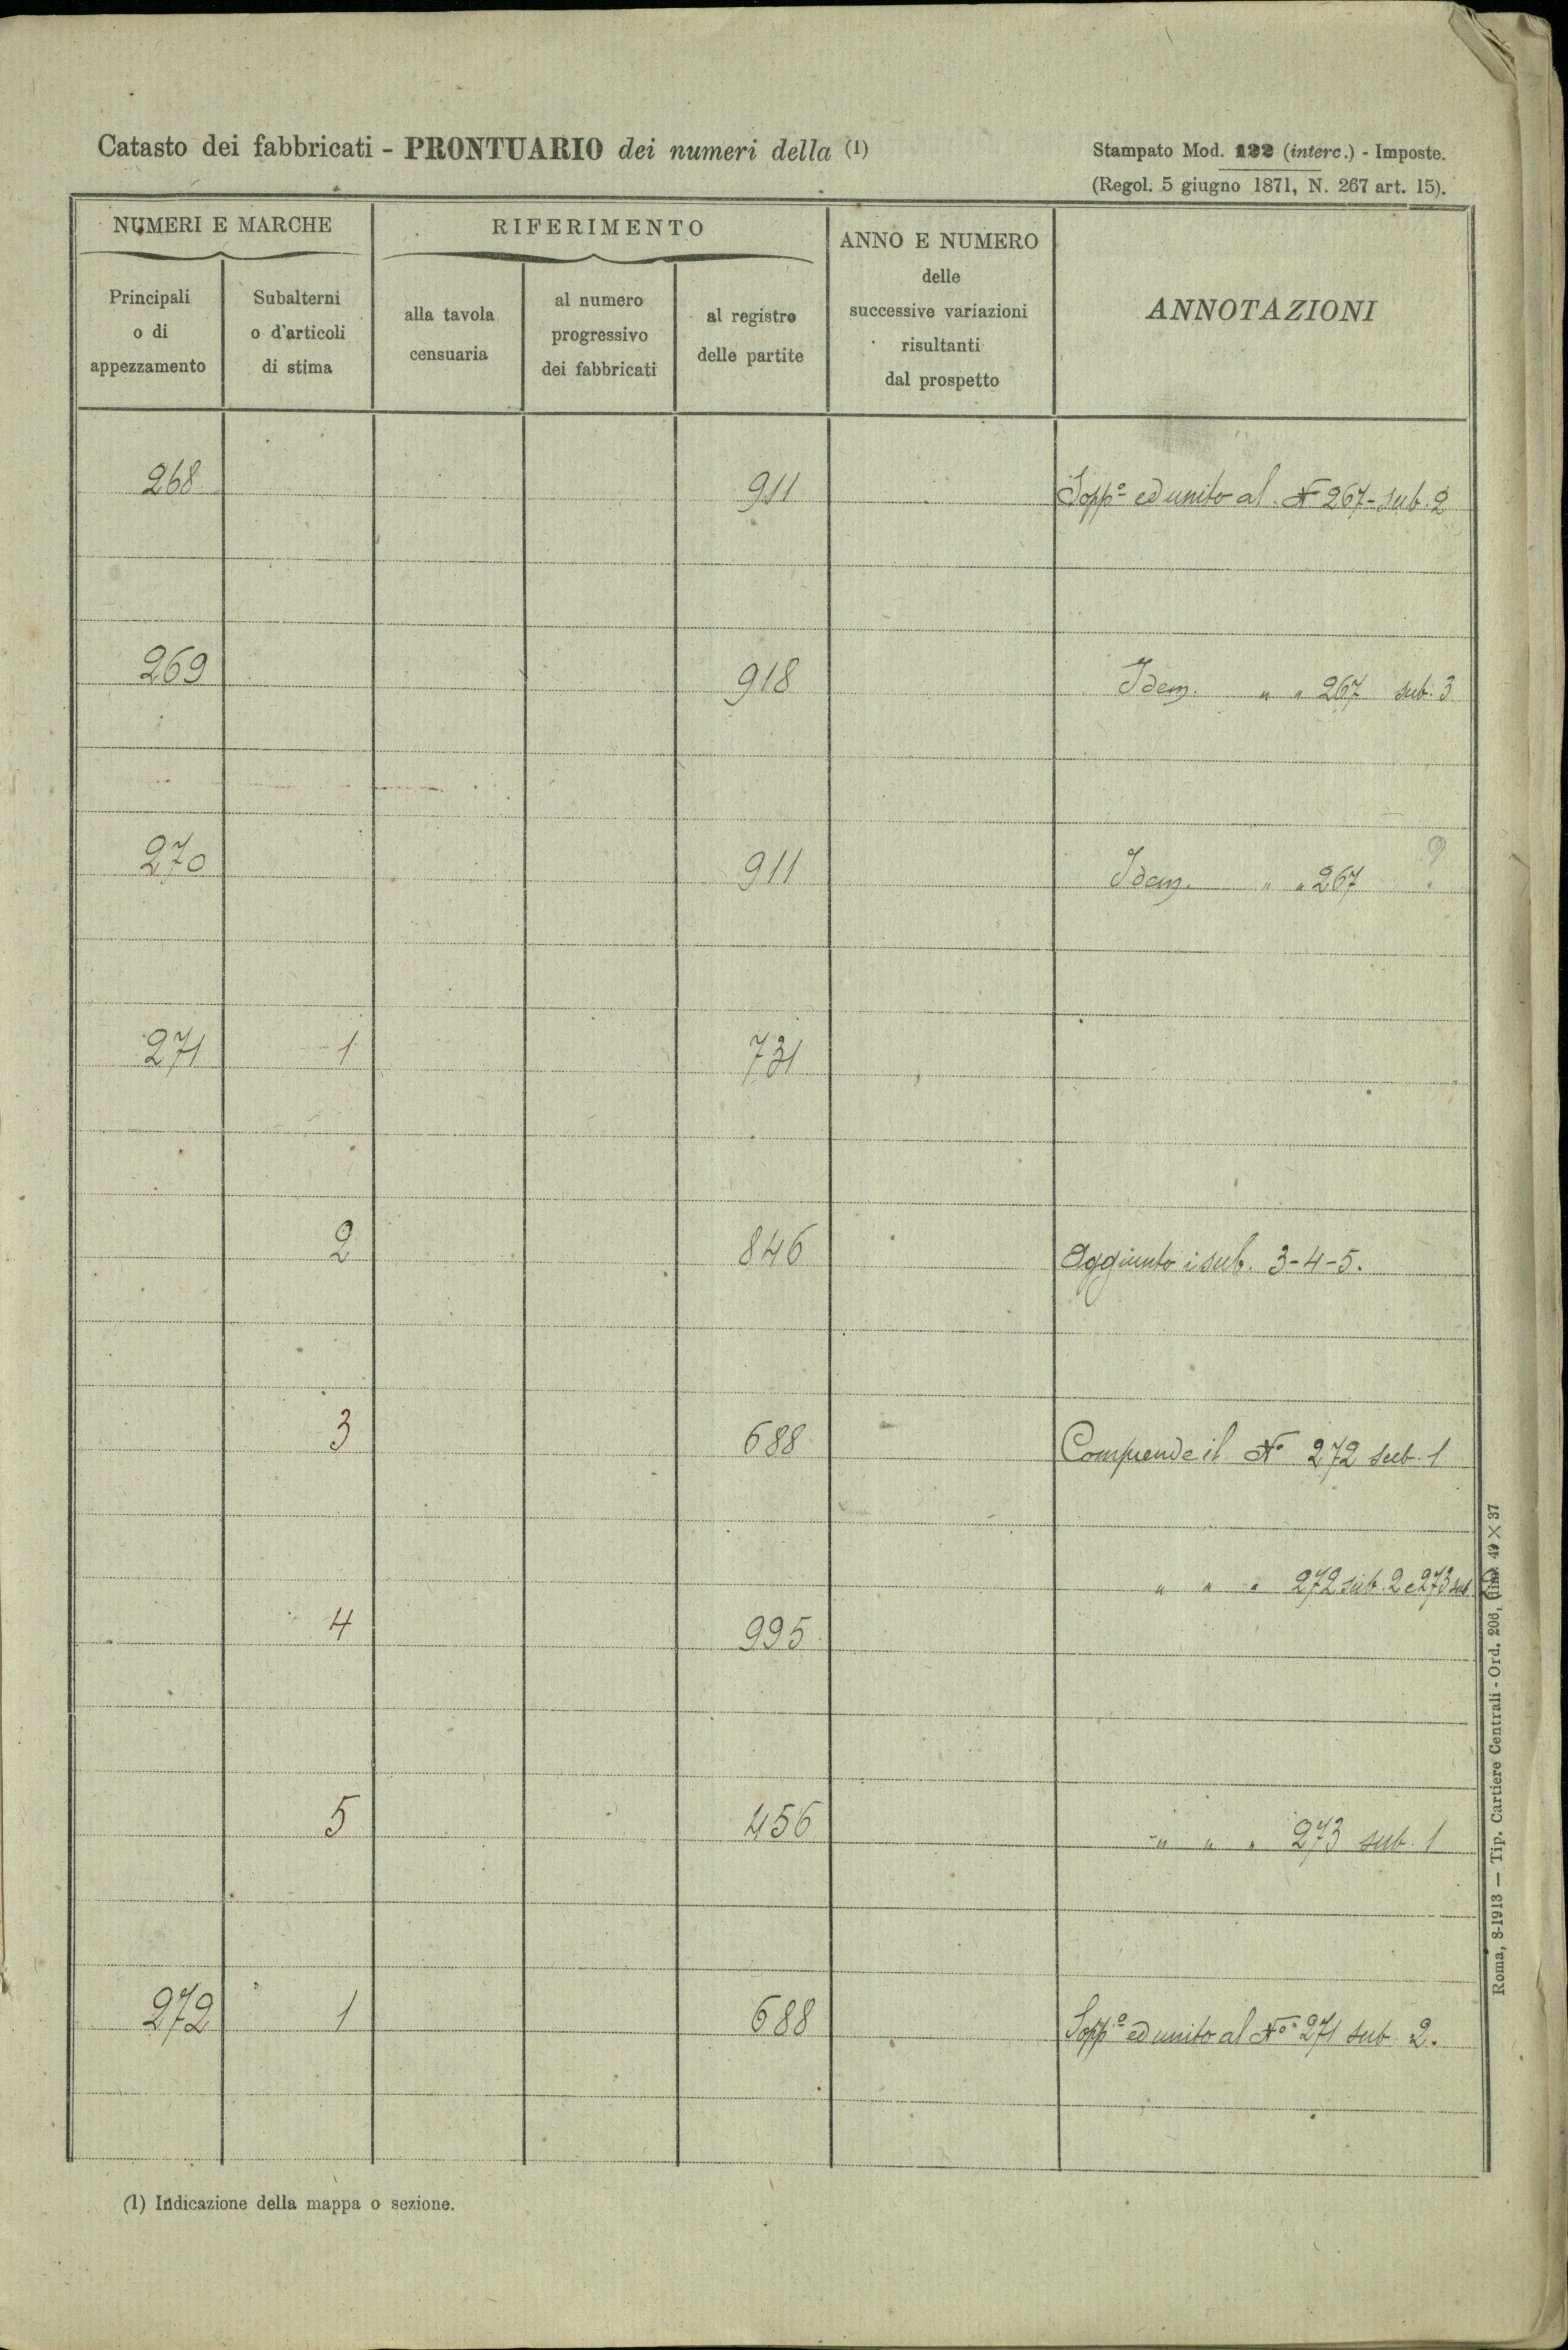 Catasto dei fabbricati - PRONTUARIO dei numeri della (1)
Stampato Mod. 122 (interc.) - Imposte.
(Regol. 5 giugno 1871, N. 267 art. 15).
NUMERI E MARCHE
RIFERIMENTO
ANNO E NUMERO
delle
successive variazioni
risultanti
dal prospetto
ANNOTAZIONI
Principali
o di
appezzamento
Subalterni
o d'articoli
di stima
alla tavola
censuaria
al numero
progressivo
dei fabbricati
al registro
delle partite
268 911 Soppº ed unito al Nº 267 - sub. 2
269 918 Idem. " " 267 sub. 3
270 911 Idem. " " 267 ?
271 1 731
2 846 Aggiunto i sub. 3-4-5.
3 688 Comprende il Nº 272 sub. 1
" " " 272 sub. 2 e 273 sub.
4 995
5 456 " " " 273 sub. 1
272 1 688 Soppº ed unito al Nº 271 sub. 2.
(1) Indicazione della mappa o sezione.
Roma, 8-1913 — Tip. Cartiere Centrali - Ord. 206, (dim. 49 × 37